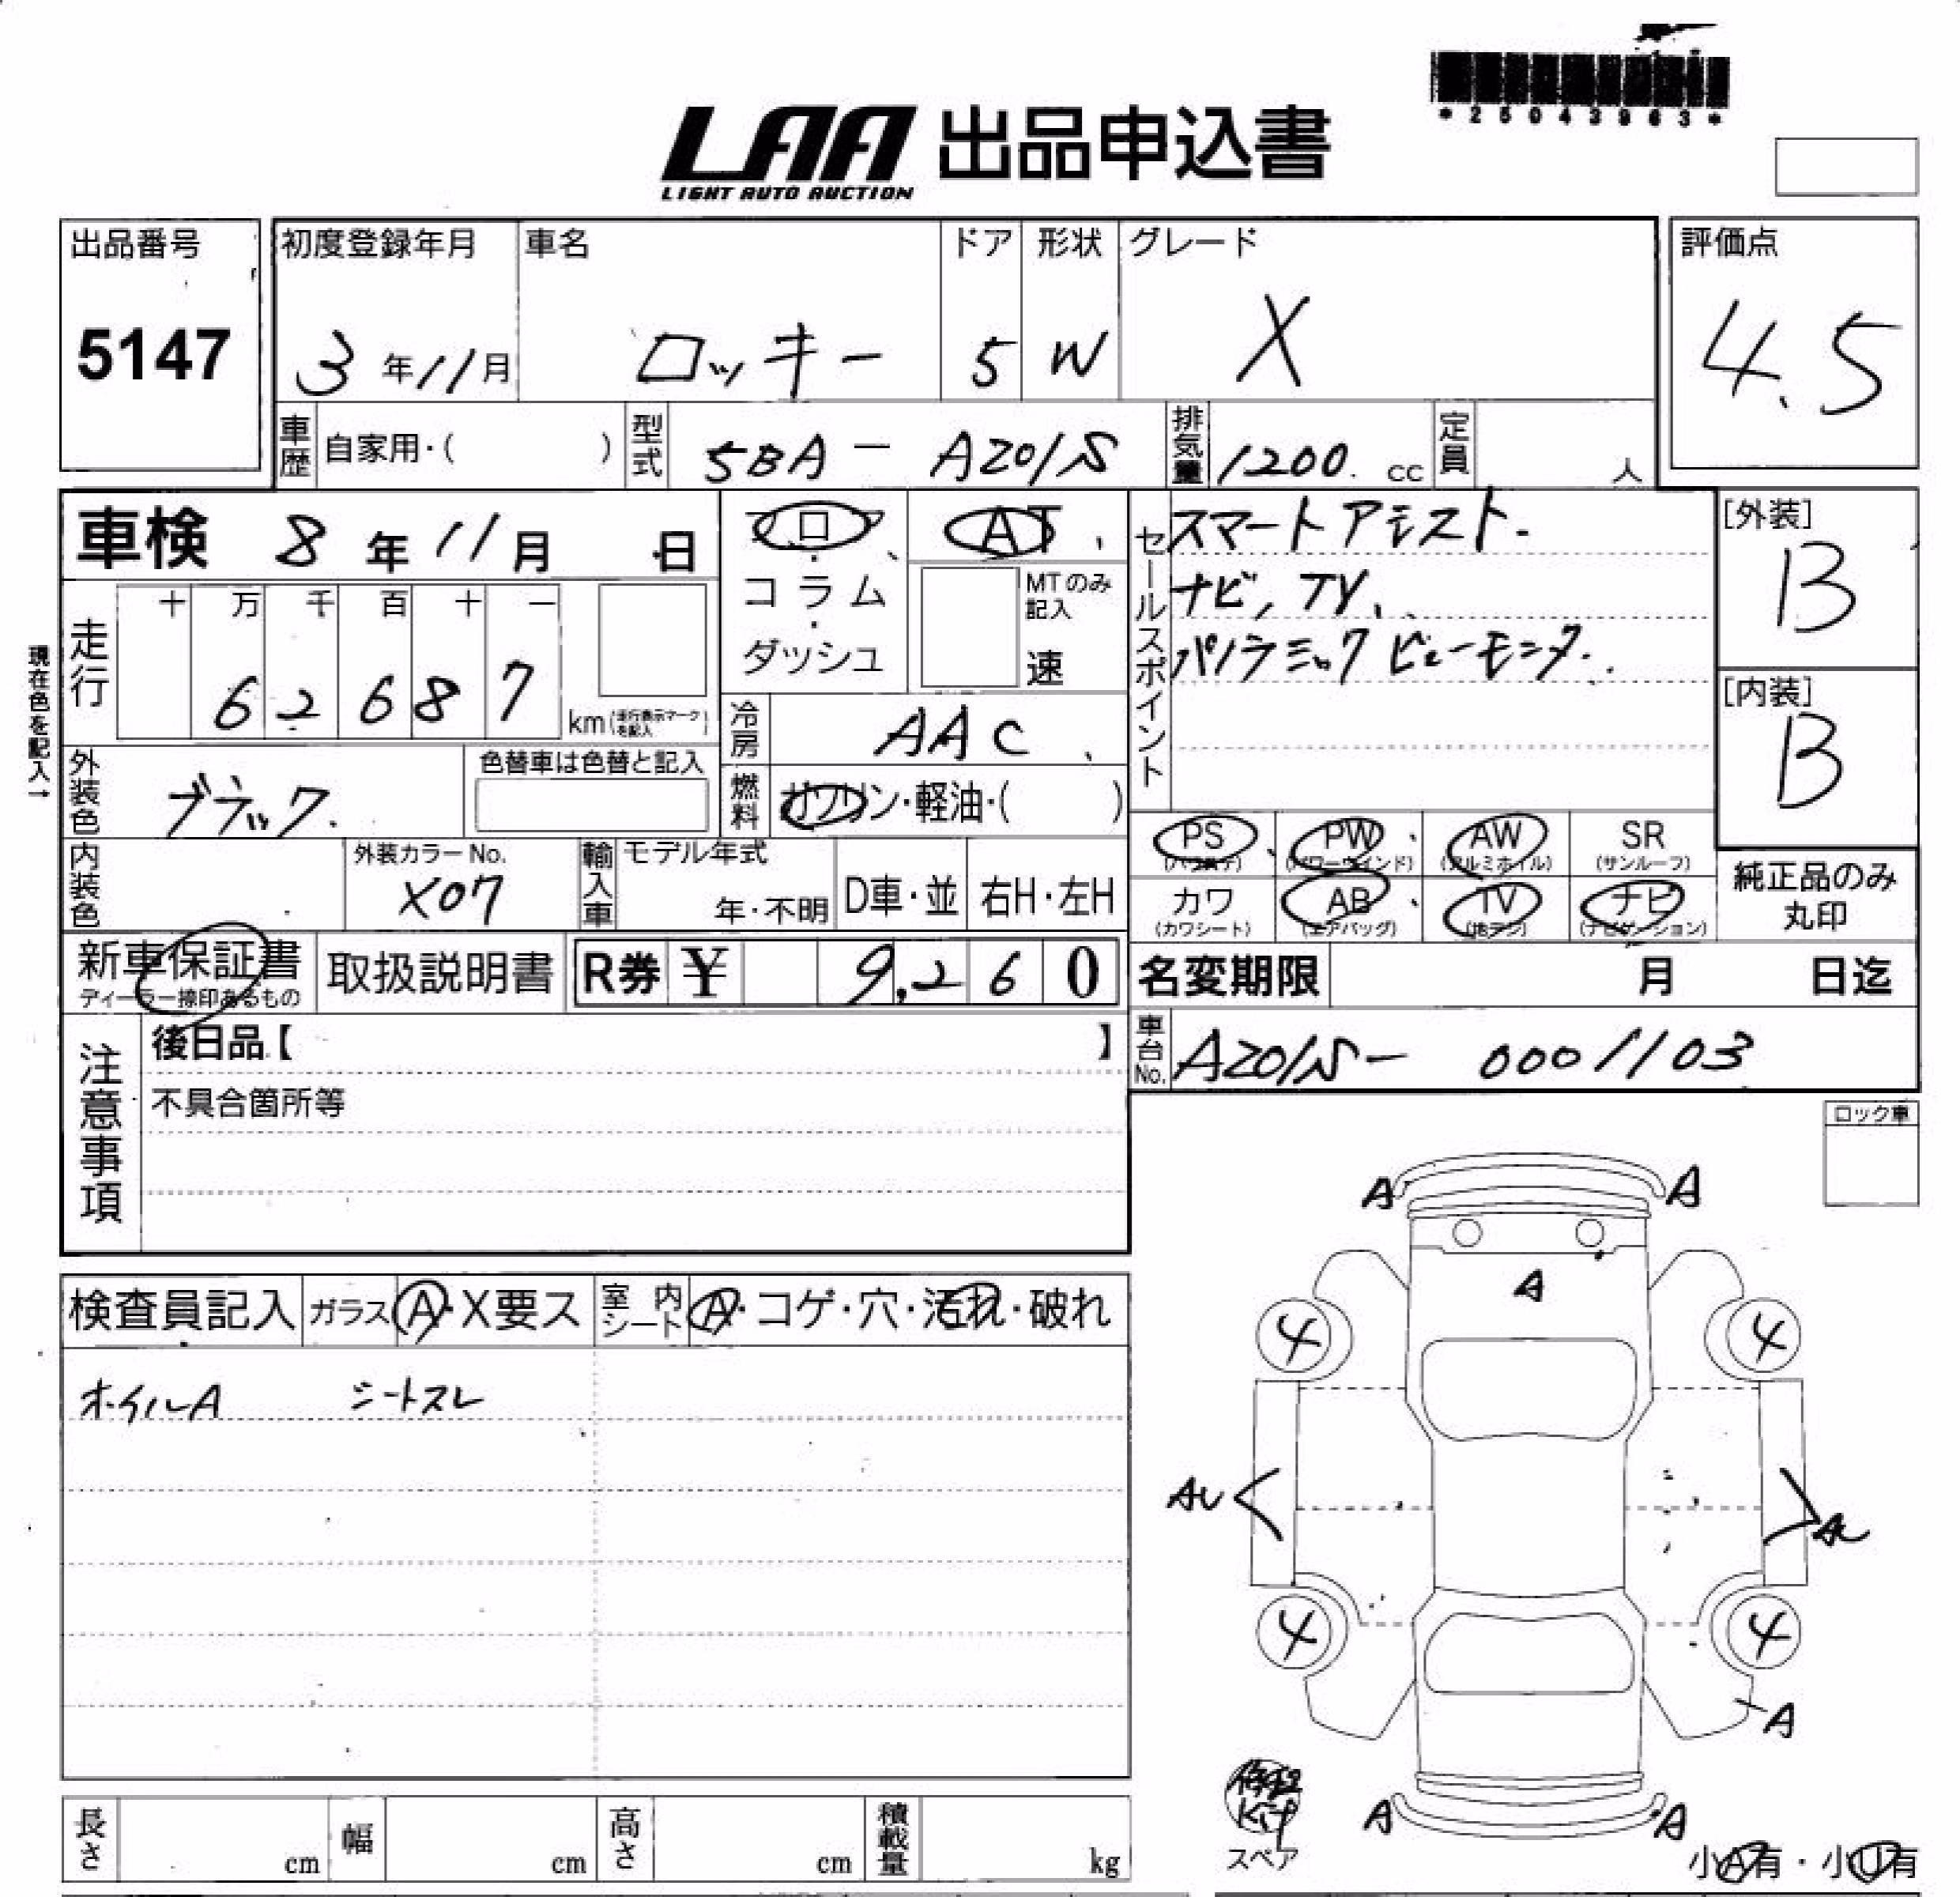 *25043963*
LAA 出品申込書
LIGHT AUTO AUCTION
出品番号 初度登録年月 車名 ドア 形状 グレード 評価点
5147 3年11月 ロッキー 5 W X 4.5
車歴 自家用・( ) 型式 5BA-A201S 排気量 1200 cc 定員 人
車検 8年11月 日 フロア AT セールスポイント スマートアシスト. [外装]
コラム MTのみ記入 ナビ, TV, B
ダッシュ 速 パノラミックビューモニター.
現在色を記入→
走行 十 万 千 百 十 一
62687 km(走行表示マークを記入) 冷房 AAC [内装]
B
外装色 ブラック. 色替車は色替と記入 燃料 ガソリン・軽油・( )
PS PW AW SR
(パワステ) (パワーウインド) (アルミホイル) (サンルーフ)
内装色 外装カラーNo. X07 輸入車 モデル年式 年・不明 D車・並 右H・左H
カワ AB TV ナビ 純正品のみ
(カワシート) (エアバッグ) (地デジ) (ナビゲーション) 丸印
新車保証書 取扱説明書 R券 ¥ 9,260 名変期限 月 日迄
ディーラー捺印あるもの
注意事項 後日品【 】 車台No. A201S-0001103
不具合箇所等
ロック車
A A
A
検査員記入 ガラス A・X要ス 室内シート A・コゲ・穴・汚れ・破れ
4 4
ホイルA シートスレ
AU AU
4 4
A
修理
Kit
スペア
A A
長さ cm 幅 cm 高さ cm 積載量 kg
小A有・小U有